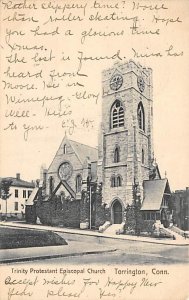 Rather slippery time? Worse
than roller skating. Hope
you had a glorious time
Xmas.
The lost is found. Nina has
heard from
Moose. Is in
Winnipeg.
Well. Here's
to you
Trinity Protestant Episcopal Church Torrington, Conn.
accept wishes for a Happy New
Year from